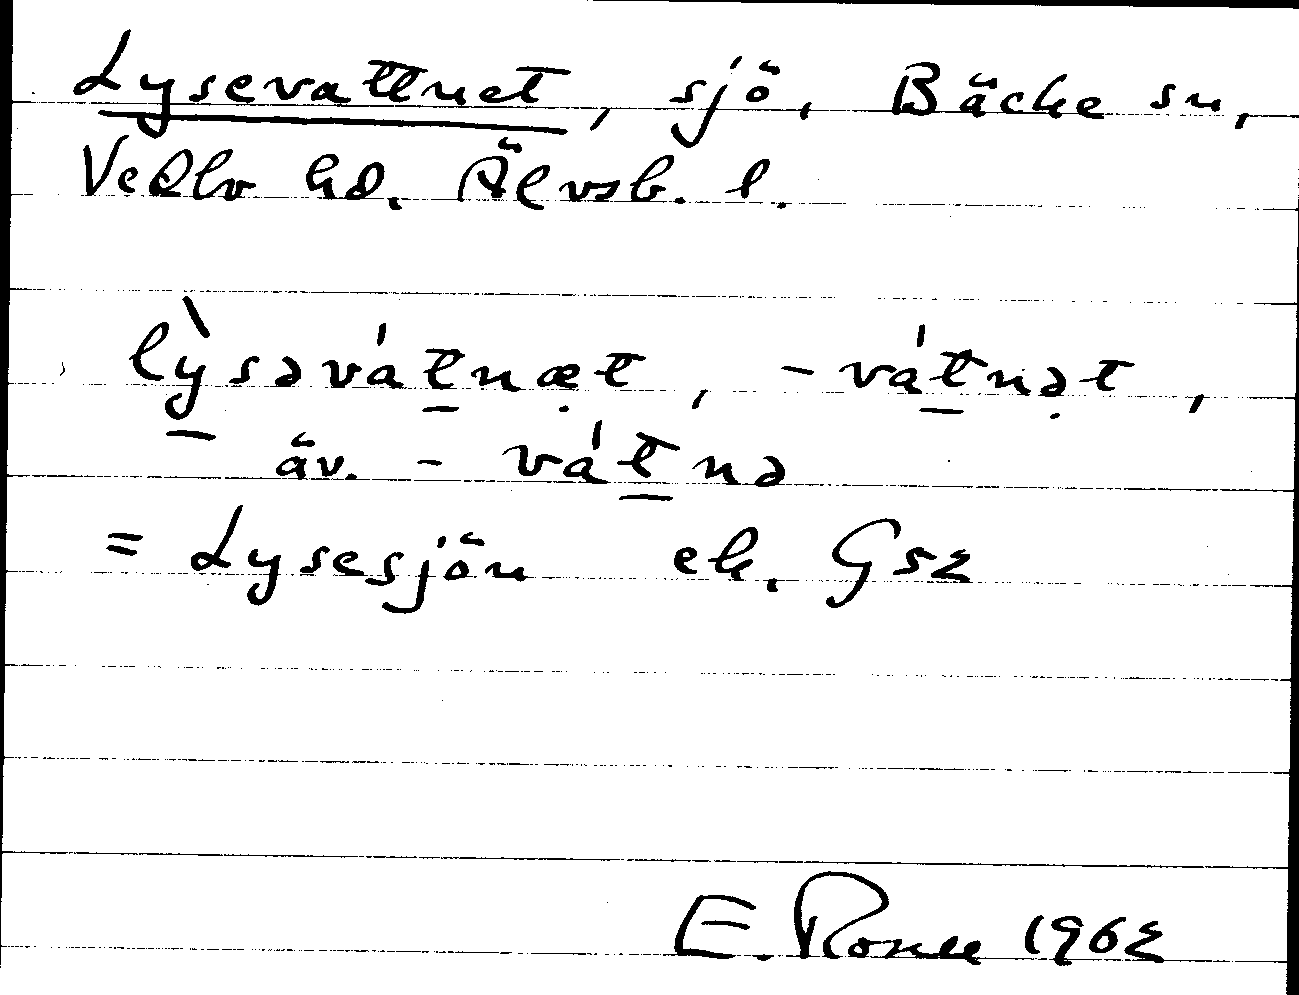 Lysevattnet, sjö, Bäcke sn,
Vedbo hd. Älvsb. l.
lỳ̠səvát̠næ̣t, -vát̠nə̣t,
äv. - vát̠nə
= Lysesjön ek. Gsz
E. Rosell 1962